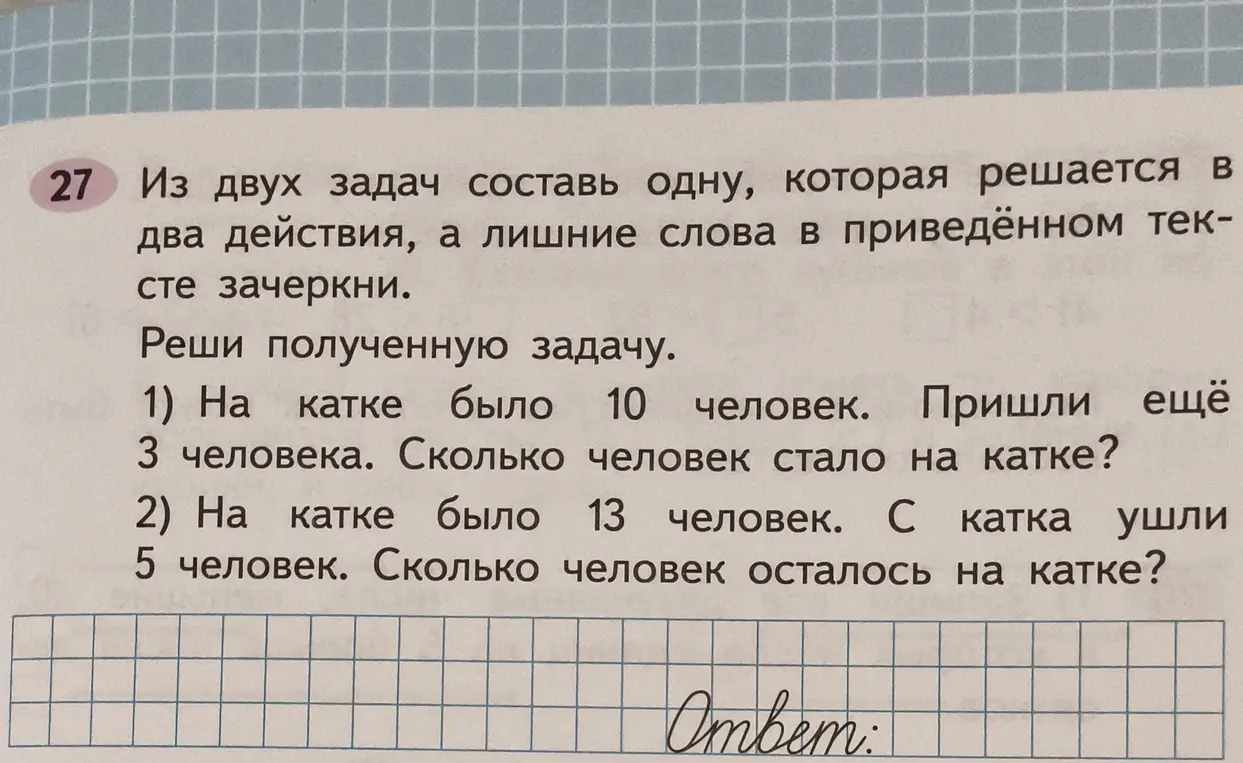 27 Из двух задач составь одну, которая решается в
два действия, а лишние слова в приведённом тек-
сте зачеркни.
Реши полученную задачу.
1) На катке было 10 человек. Пришли ещё
3 человека. Сколько человек стало на катке?
2) На катке было 13 человек. С катка ушли
5 человек. Сколько человек осталось на катке?
Ответ: